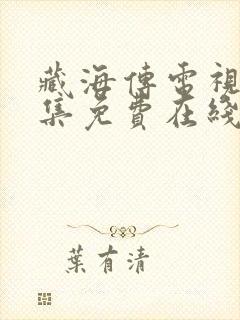 藏海傳電視
集免費在綫
葉有清